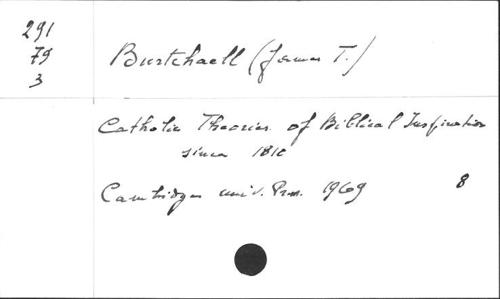 291
79
3
Burtchaell (James T.)
Catholic Theories of Biblical Inspiration
since 1810
Cambridge univ. Press. 1969 8